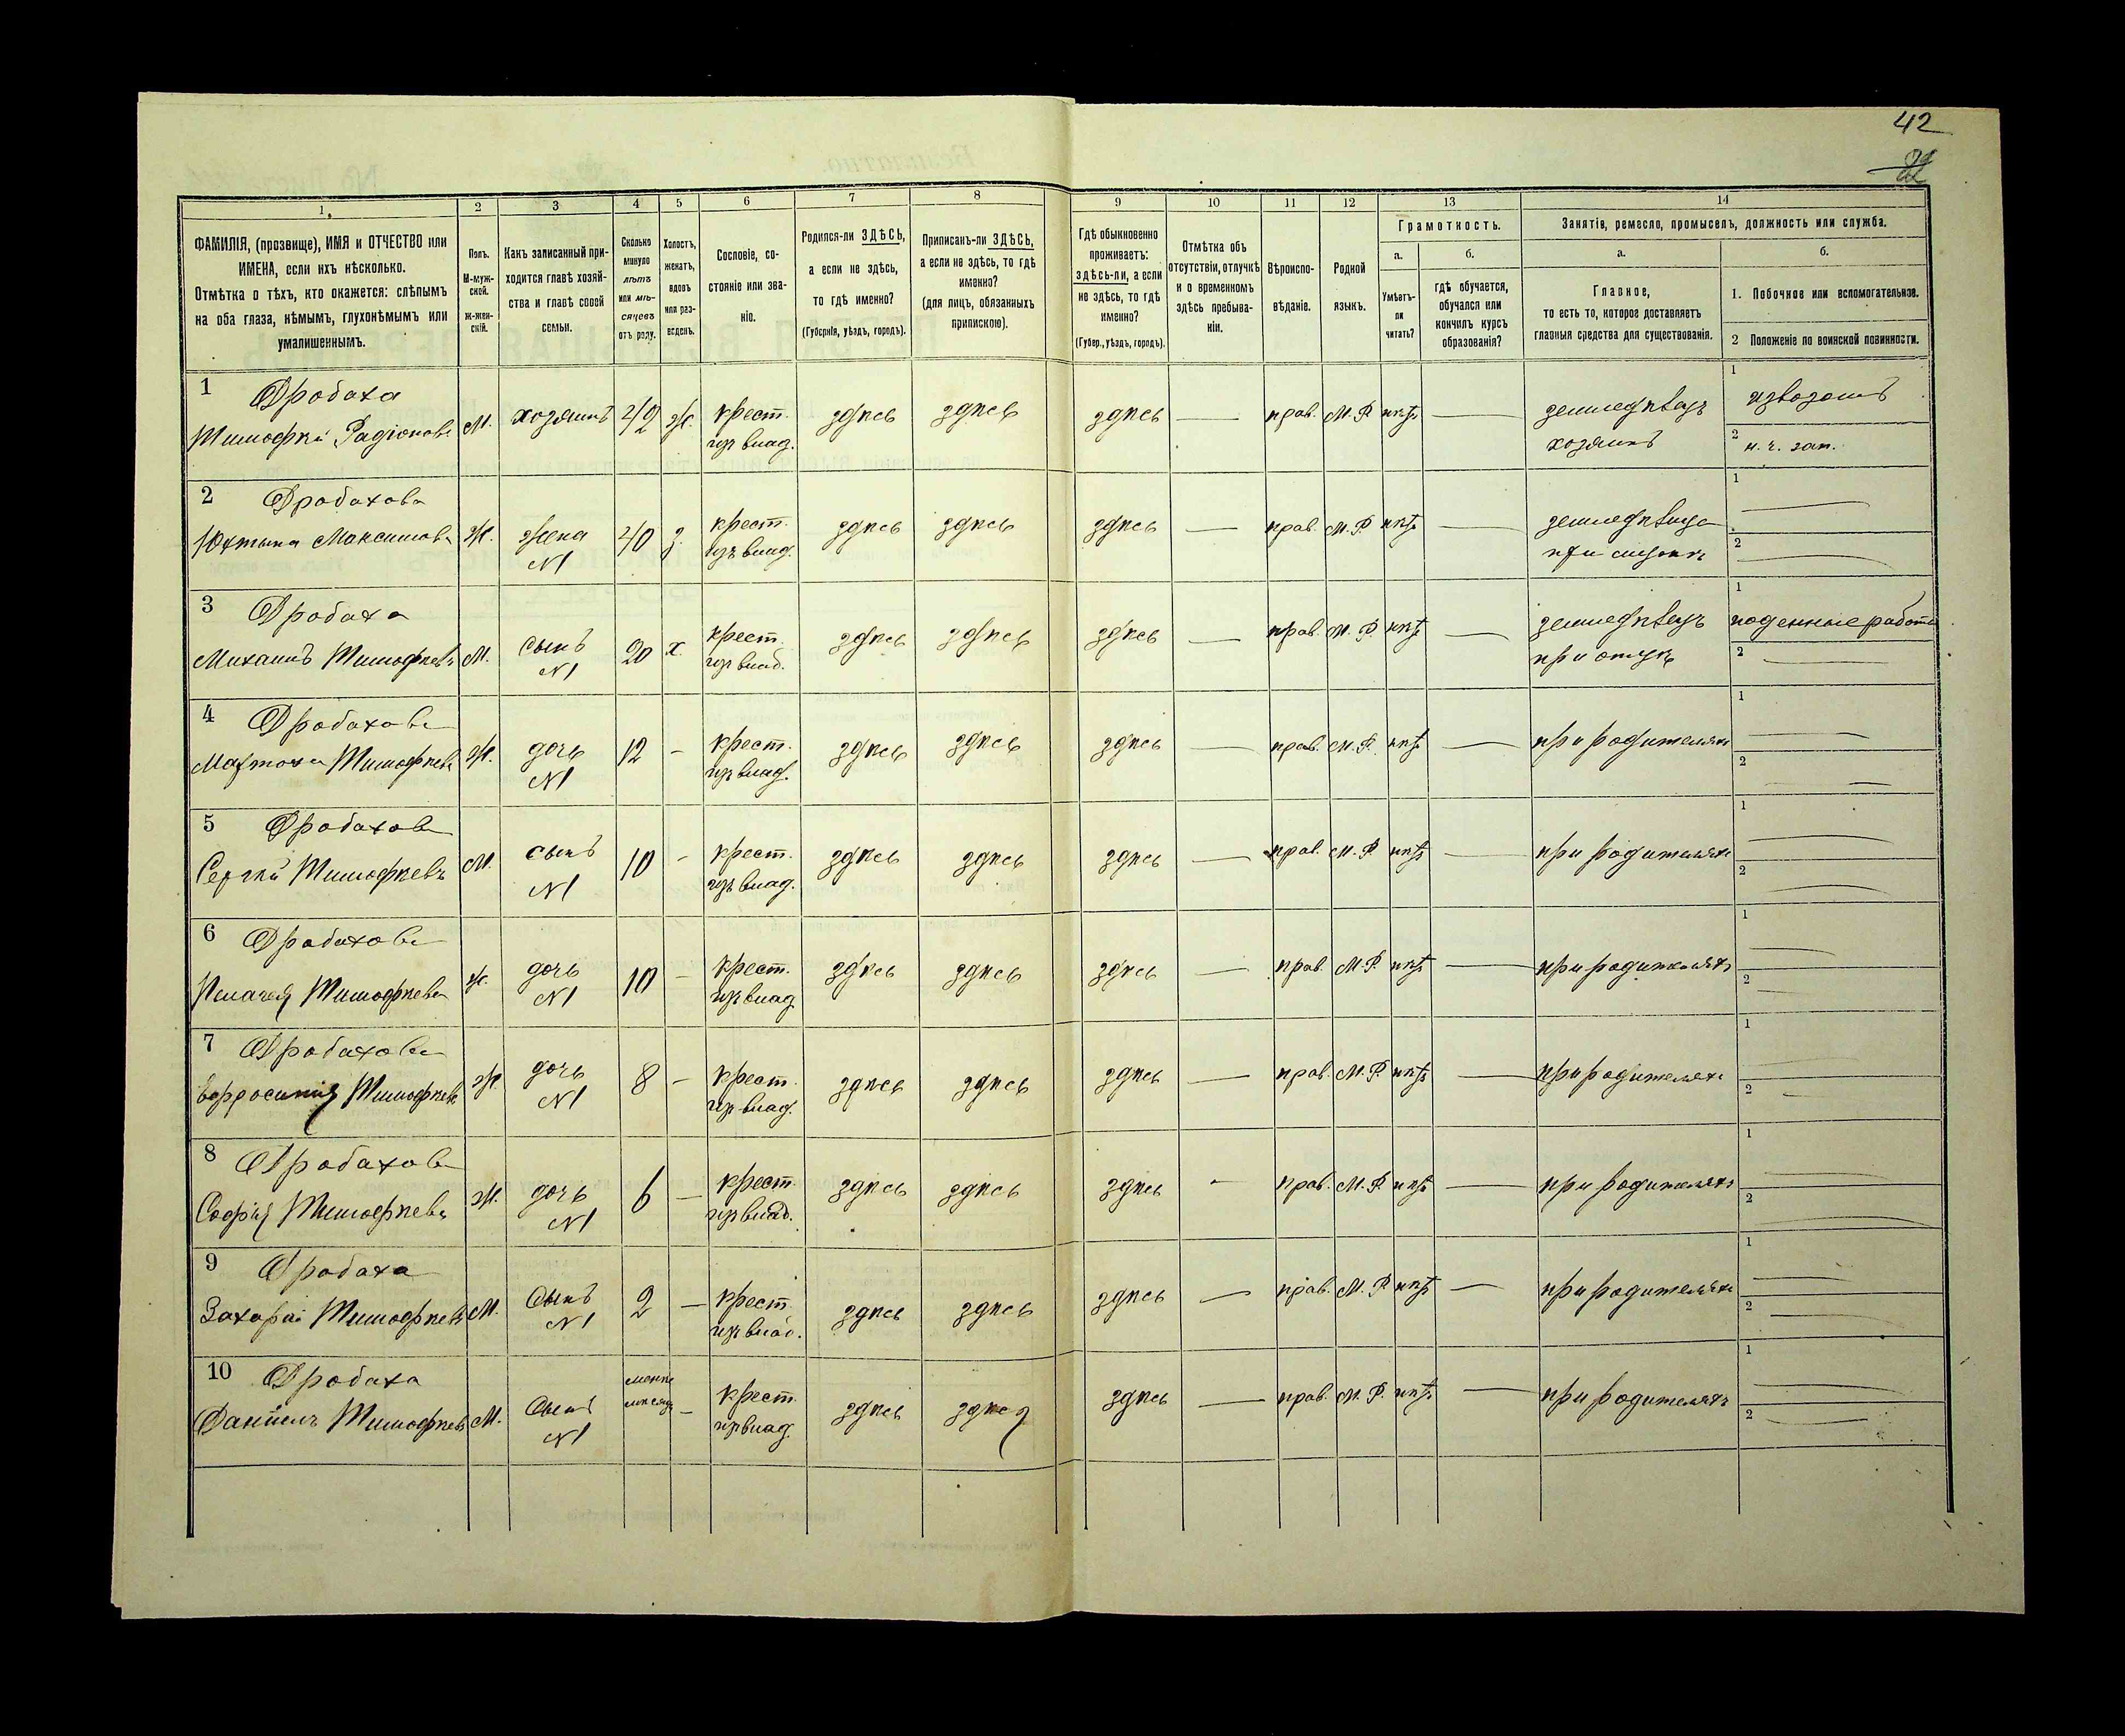 42
1.
2
3
4
5
6
7
8
9
10
11
12
13
14
ФАМИЛІЯ, (прозвище), ИМЯ и ОТЧЕСТВО или
ИМЕНА, если ихъ нѣсколько.
Отмѣтка о тѣхъ, кто окажется: слѣпымъ
на оба глаза, нѣмымъ, глухонѣмымъ или
умалишеннымъ.
Полъ.
М-муж-
ской.
Ж-жен-
скій.
Какъ записанный при-
ходится главѣ хозяй-
ства и главѣ своей
семьи.
Сколько
минуло
лѣтъ
или мѣ-
сяцевъ
отъ роду.
Холостъ,
женатъ,
вдовъ
или раз-
веденъ.
Сословіе, со-
стояніе или зва-
ніе.
Родился-ли ЗДѢСЬ,
а если не здѣсь,
то гдѣ именно?
(Губернія, уѣздъ, городъ).
Приписанъ-ли ЗДѢСЬ,
а если не здѣсь, то гдѣ
именно?
(для лицъ, обязанныхъ
припискою).
Гдѣ обыкновенно
проживаетъ:
здѣсь-ли, а если
не здѣсь, то гдѣ
именно?
(Губер., уѣздъ, городъ).
Отмѣтка объ
отсутствіи, отлучкѣ
и о временномъ
здѣсь пребыва-
ніи.
Вѣроиспо-
вѣданіе.
Родной
языкъ.
Грамотность.
а.
Умѣетъ-
ли
читать?
б.
гдѣ обучается,
обучался или
кончилъ курсъ
образованія?
Занятія, ремесло, промыселъ, должность или служба.
а.
Главное,
то есть то, которое доставляетъ
главныя средства для существованія.
б.
1. Побочное или вспомогательное.
2 Положеніе по воинской повинности.
1 Дробаха
Тимофѣй Радіоновъ М. хозяинъ 42 ж. крест. изъ влад. здѣсь здѣсь здѣсь — прав. М.Р. нѣтъ — земледѣлецъ хозяинъ 1 извозомъ 2 н. ч. зап.
2 Дробахова
Максимова Ж. жена N1 40 з. крест. изъ влад. здѣсь здѣсь здѣсь — прав. М.Р. нѣтъ — при 1 — 2 —
3 Дробаха
Михаилъ Тимофѣевъ М. сынъ N1 20 х. крест. изъ влад. здѣсь здѣсь здѣсь — прав. М.Р. нѣтъ — земледѣлецъ при отцѣ 1 поденные работы 2 —
4 Дробахова
Тимофѣева Ж. дочь N1 12 - крест. изъ влад. здѣсь здѣсь здѣсь — прав. М.Р. нѣтъ — при родителяхъ 1 — 2 —
5 Дробахов
Сергѣй Тимофѣевъ М. сынъ N1 10 - крест. изъ влад. здѣсь здѣсь здѣсь — прав. М.Р. нѣтъ — при родителяхъ 1 — 2 —
6 Дробахова
Пелагея Тимофѣева Ж. дочь N1 10 - крест. изъ влад. здѣсь здѣсь здѣсь — прав. М.Р. нѣтъ — при родителяхъ 1 — 2 —
7 Дробахова
Ефросинія Тимофѣева Ж. дочь N1 8 - крест. изъ влад. здѣсь здѣсь здѣсь — прав. М.Р. нѣтъ — при родителяхъ 1 — 2 —
8 Дробахова
Софія Тимофѣева Ж. дочь N1 6 - крест. изъ влад. здѣсь здѣсь здѣсь - прав. М.Р. нѣтъ — при родителяхъ 1 — 2 —
9 Дробаха
Захарій Тимофѣевъ М. сынъ N1 2 - крест. изъ влад. здѣсь здѣсь здѣсь — прав. М.Р. нѣтъ — при родителяхъ 1 — 2 —
10 Дробаха
Даніилъ Тимофѣевъ М. сынъ N1 менѣе мѣсяца - крест. изъ влад. здѣсь здѣсь здѣсь — прав. М.Р. нѣтъ — при родителяхъ 1 — 2 —